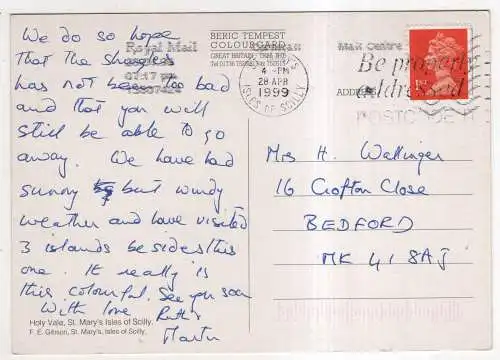 We do so hope
that the shingles
has not been too bad
and that you will
still be able to go
away. We have had
sunny but windy
weather and have visited
3 islands besides this
one. It really is
this colourful. See you soon
With love Ruth +
Martin
Holy Vale, St. Mary's Isles of Scilly.
F. E. Gibson, St. Mary's, Isles of Scilly.
BERIC TEMPEST
COLOURCARD
Royal Mail
4 - PM
28 APR
1999
ISLES OF SCILLY
Mail Centre
Be properly
addressed
POSTCODE IT
ADDRESS
1ST
Mrs H. Wallinger
16 Crofton Close
BEDFORD
MK41 8AJ